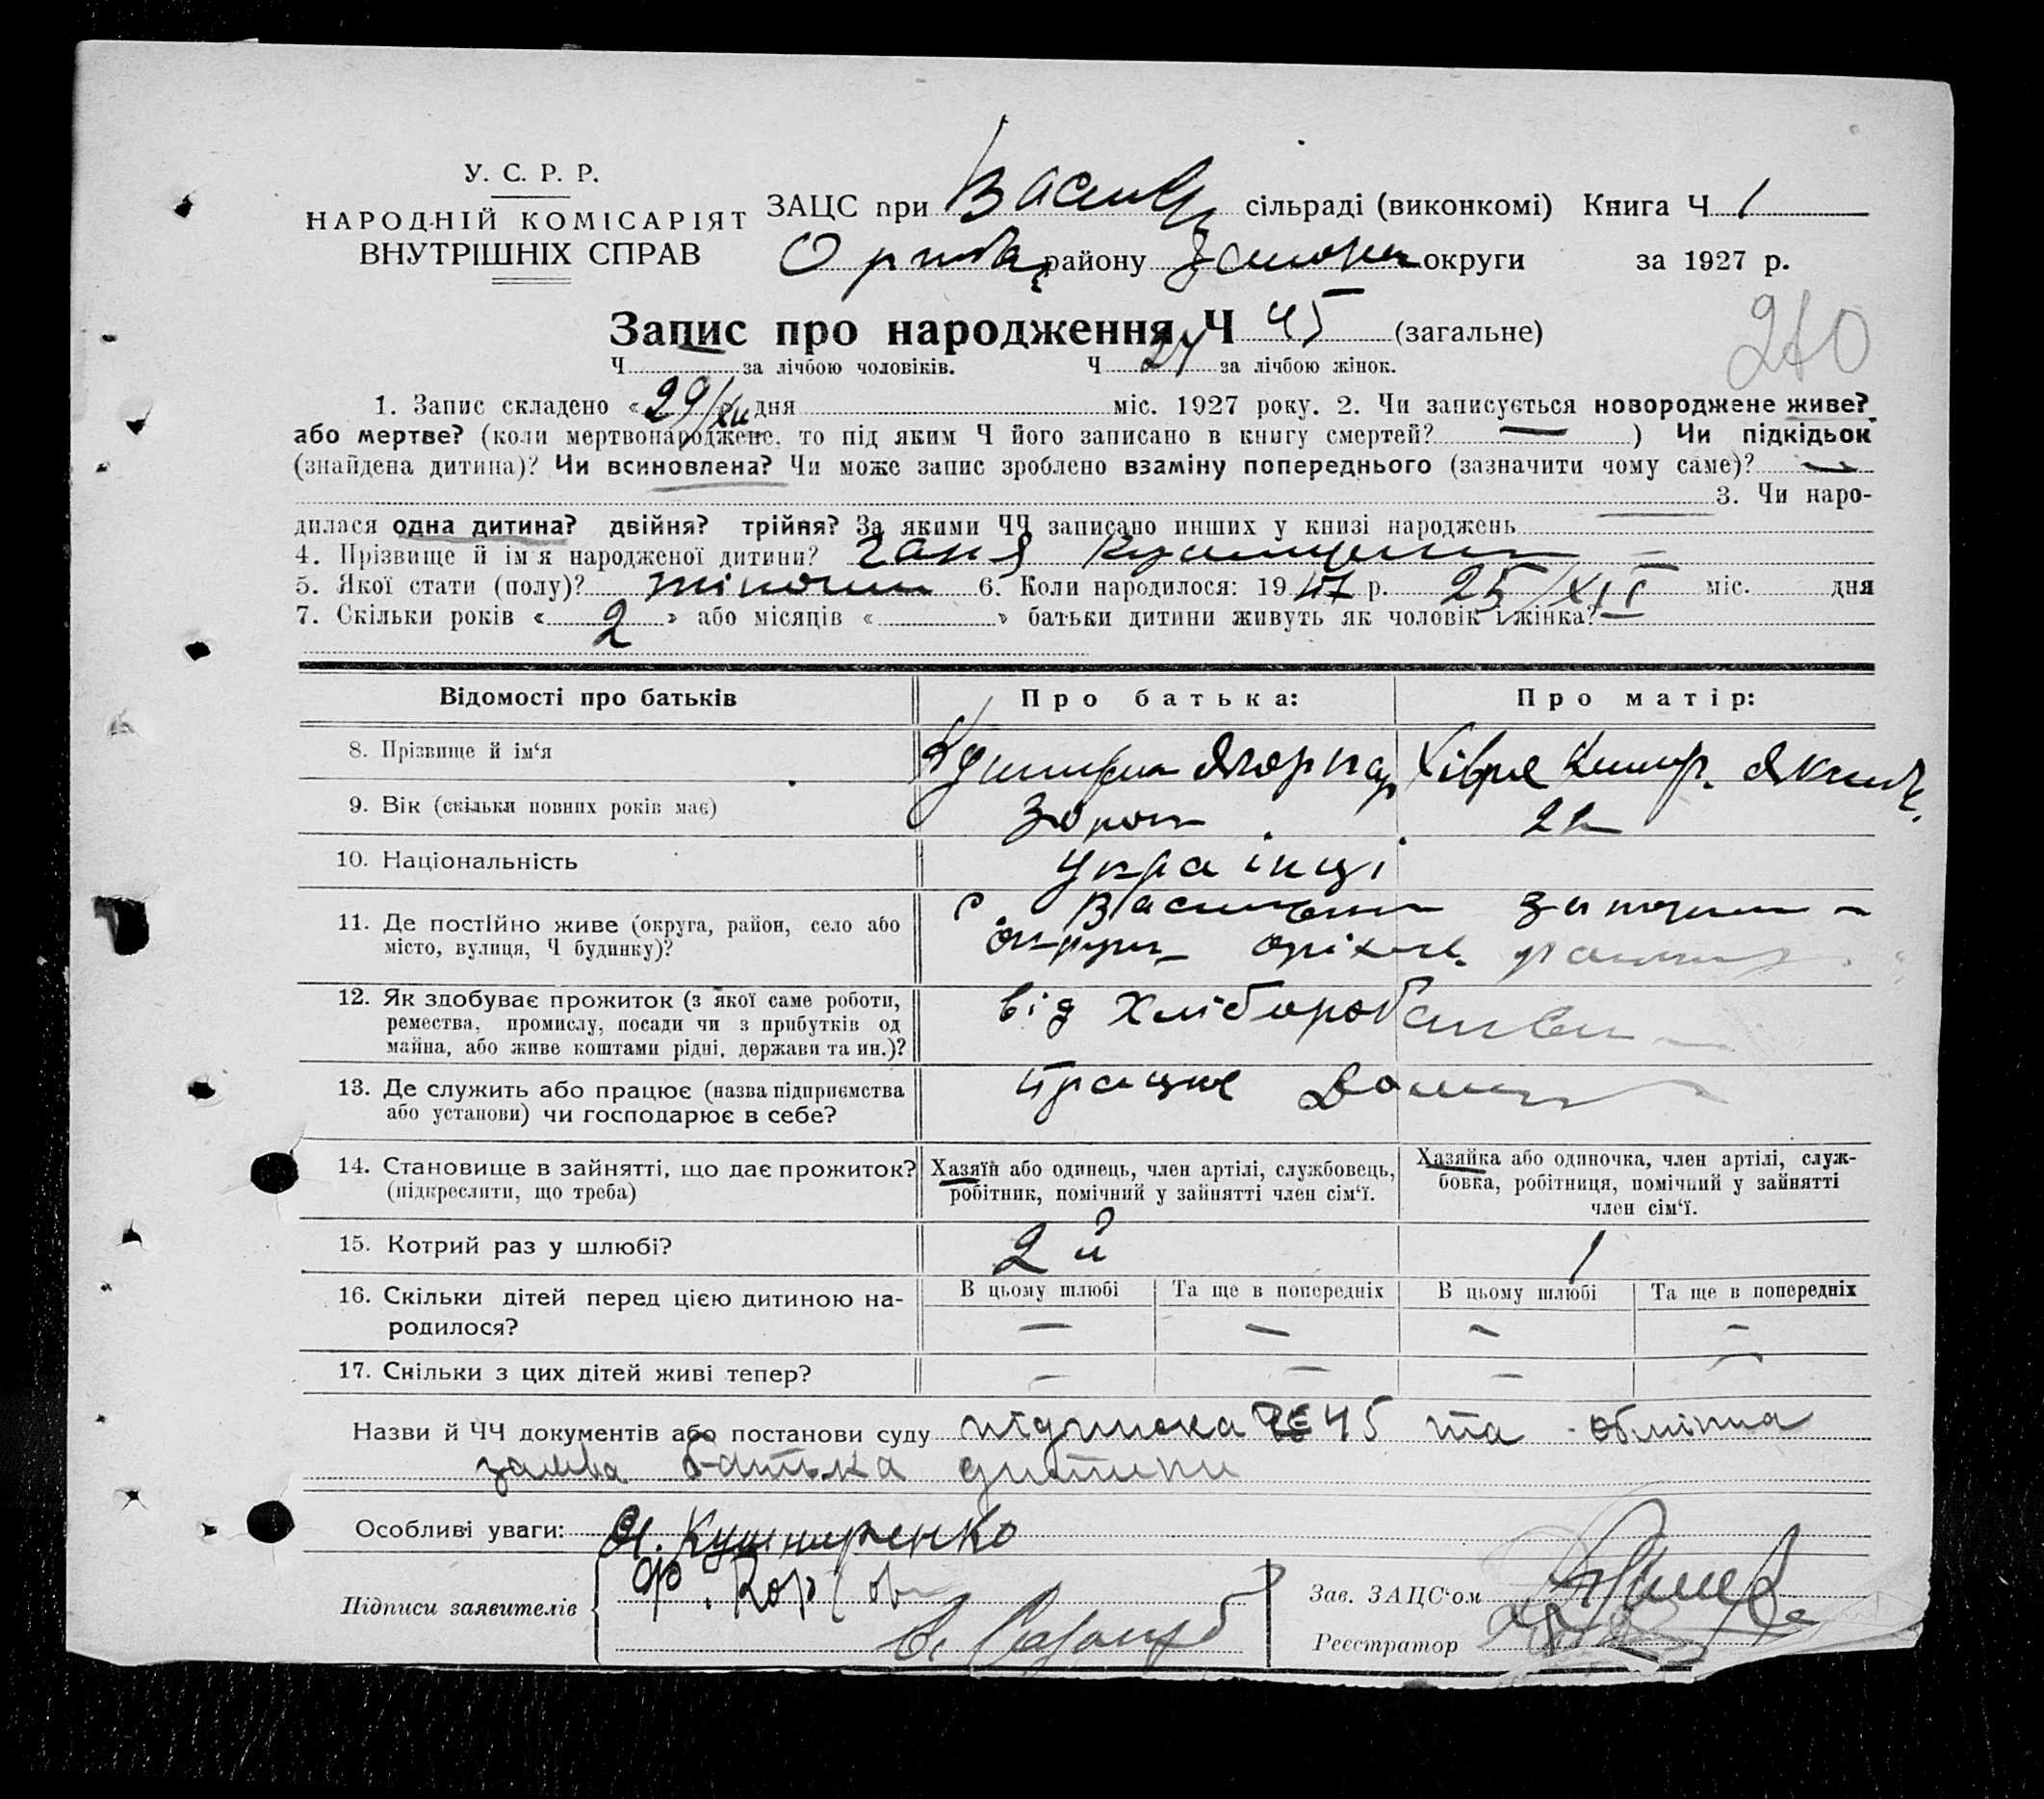 У. С. Р. Р.
НАРОДНІЙ КОМІСАРІЯТ
ВНУТРІШНІХ СПРАВ
ЗАЦС при сільраді (виконкомі) Книга Ч 1
району округи за 1927 р.
Запис про народження Ч 45 (загальне)
210
Ч за лічбою чоловіків. Ч за лічбою жінок.
1. Запис складено «29/XII» дня міс. 1927 року. 2. Чи записується новороджене живе?
або мертве? (коли мертвонароджене, то під яким Ч його записано в книгу смертей? — ) Чи підкідьок
(знайдена дитина)? Чи всиновлена? Чи може запис зроблено взаміну попереднього (зазначити чому саме)? —
3. Чи наро-
дилася одна дитина? двійня? трійня? За якими ЧЧ записано инших у книзі народжень
4. Прізвище й ім'я народженої дитини? Ганя
5. Якої стати (полу)? жіночи 6. Коли народилося: 1927 р. 25/XII міс. дня
7. Скільки років «2» або місяців « » батьки дитини живуть як чоловік і жінка?
Відомості про батьків Про батька: Про матір:
8. Прізвище й ім'я Хівря
9. Вік (скільки повних років має)
10. Національність Українці
11. Де постійно живе (округа, район, село або
місто, вулиця, Ч будинку)?
с.
округи
12. Як здобуває прожиток (з якої саме роботи,
ремества, промислу, посади чи з прибутків од
майна, або живе коштами рідні, держави та ин.)?
від Хліборобства
13. Де служить або працює (назва підприємства
або установи) чи господарює в себе?
працює Дома
14. Становище в зайнятті, що дає прожиток?
(підкреслити, що треба)
Хазяїн або одинець, член артілі, службовець,
робітник, помічний у зайнятті член сім'ї.
Хазяйка або одиночка, член артілі, служ-
бовка, робітниця, помічний у зайнятті
член сім'ї.
15. Котрий раз у шлюбі? 2й 1
16. Скільки дітей перед цією дитиною на-
родилося?
В цьому шлюбі Та ще в попередніх В цьому шлюбі Та ще в попередніх
— — — —
17. Скільки з цих дітей живі тепер? — — — —
Назви й ЧЧ документів або постанови суду підписка 45 та
заява батька дитини
Особливі уваги: Я. Кушниренко
Підписи заявителів
Зав. ЗАЦС'ом
Реєстратор